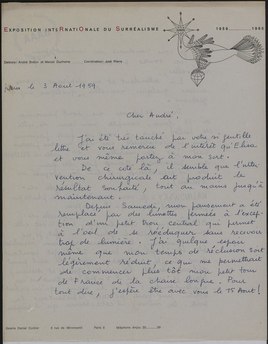 EXPOSITION INTERNATIONALE DU SURRÉALISME
1959 1960
Paris le 3 Août 1959.
Cher André,
J'ai été très touché par votre si gentille
lettre et vous remercie de l'intérêt qu'Elisa
et vous même portez à mon sort.
De ce côté là, il semble que l'inter-
vention chirurgicale ait produit le
résultat souhaité, tout au moins jusqu'à
maintenant.
Depuis Samedi, mon pansement a été
remplacé par des lunettes fermées à l'excep-
tion d'un petit trou central qui permet
à l'œil de se rééduquer sans recevoir
trop de lumière. J'ai quelque espoir
même que mon temps de réclusion soit
légèrement réduit, ce qui me permettrait
de commencer plus tôt mon petit tour
de France de la chaise longue. Pour
tout dire, j'espère être avec vous le 15 Août!
Galerie Daniel Cordier 8 rue de Miromesnil Paris 8